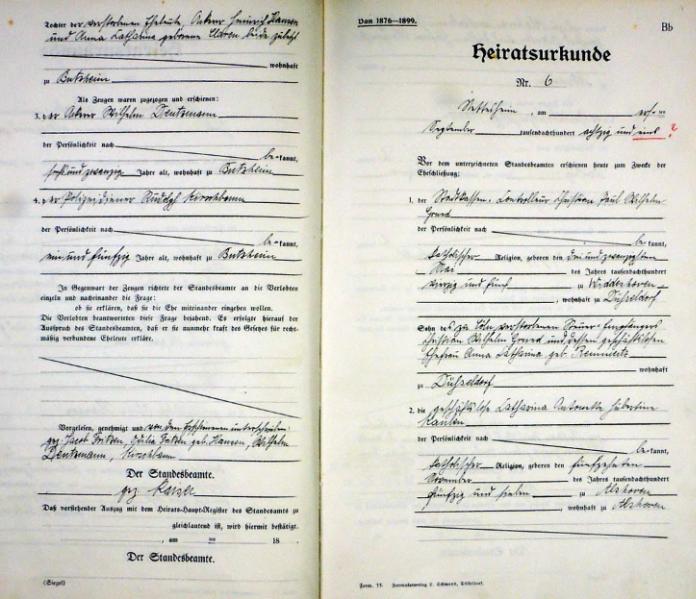 Tochter der verstorbenen Eheleute, Ackerer Heinrich Hansen
und Anna Catharina geborene zuletzt
wohnhaft
zu Butzheim
Als Zeugen waren zugezogen und erschienen:
3. der Ackerer Wilhelm Deutzmann
der Persönlichkeit nach
be=kannt,
Jahre alt, wohnhaft zu Butzheim
4. der Polizeidiener Rudolph Kirschbaum
der Persönlichkeit nach
be=kannt,
ein und fünfzig Jahre alt, wohnhaft zu Butzheim
In Gegenwart der Zeugen richtete der Standesbeamte an die Verlobten
einzeln und nacheinander die Frage:
ob sie erklären, daß sie die Ehe miteinander eingehen wollen.
Die Verlobten beantworteten diese Frage bejahend. Es erfolgte hierauf der
Ausspruch des Standesbeamten, daß er sie nunmehr kraft des Gesetzes für recht-
mäßig verbundene Eheleute erkläre.
Vorgelesen, genehmigt und von den Erschienenen unterschrieben:
gez. Jacob geb. Hansen, Wilhelm
Deutzmann, Kirschbaum
Der Standesbeamte.
gez. Kaiser
Daß vorstehender Auszug mit dem Heirats-Haupt-Register des Standesamts zu
gleichlautend ist, wird hiermit bestätigt.
, am 18
Der Standesbeamte.
(Siegel)
Von 1876—1899.
Bb
Heiratsurkunde
Nr. 6
Nettesheim, am
September tausendachthundert achtzig und eins ?
Vor dem unterzeichneten Standesbeamten erschienen heute zum Zwecke der
Eheschließung:
1. der Stadtkassen-Controlleur Christian Paul Wilhelm
der Persönlichkeit nach
be=kannt,
katholischer Religion, geboren den drei und zwanzigsten
Mai des Jahres tausendachthundert
vierzig und fünf zu
, wohnhaft zu Düsseldorf
Sohn des zu Cöln verstorbenen Steuer-Empfängers
Christian Wilhelm und dessen geschäftslosen
Ehefrau Anna Catharina geb.
wohnhaft
zu Düsseldorf
2. die geschäftslose Catharina Antonetta Hubertine
Kaulen
der Persönlichkeit nach
be=kannt,
katholischer Religion, geboren den fünfzehnten
November des Jahres tausendachthundert
fünfzig und sieben zu
, wohnhaft zu
Form. 11. Formularverlag L. Schwann, Düsseldorf.